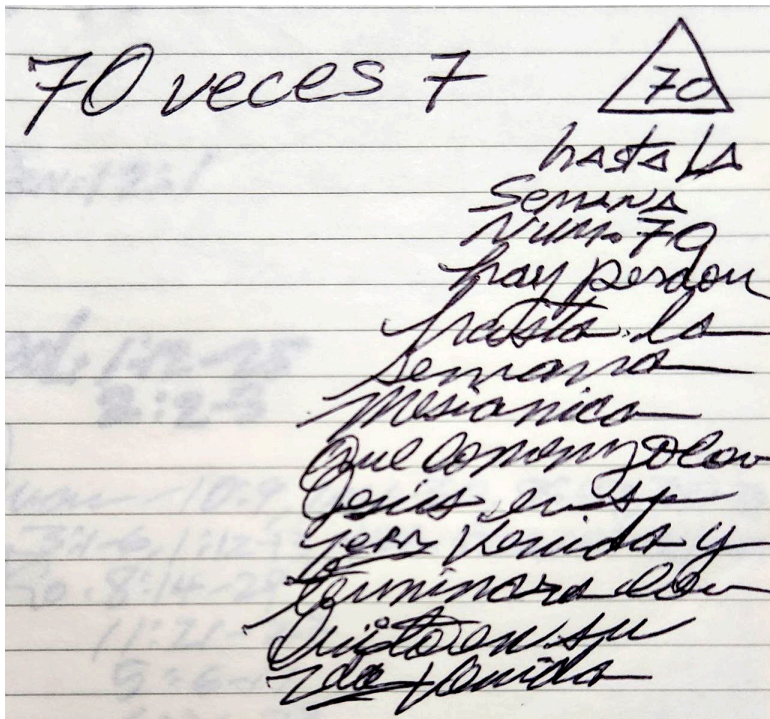 70 veces 7
70
hasta la
Semana
Num. 70
hay perdon
hasta la
semana
mesianica
que comenzo con
Jesús en su
venida y
terminara con
Cristo en su
2da venida